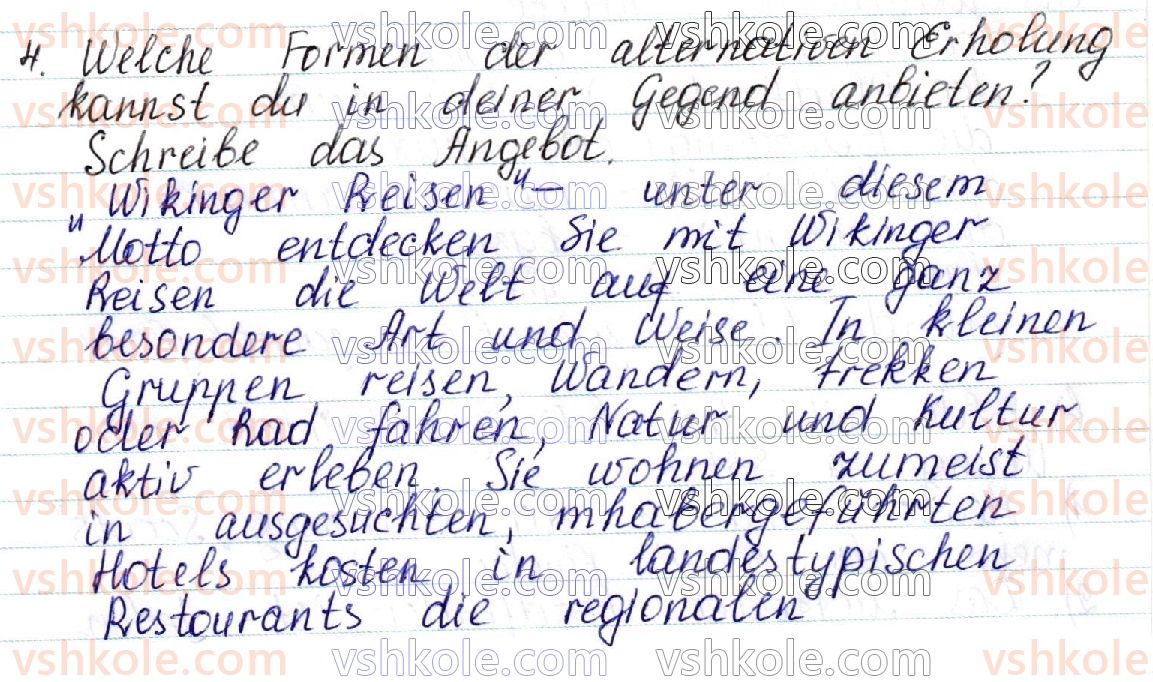 4. Welche Formen der alternativen Erholung
kannst du in deiner Gegend anbieten?
Schreibe das Angebot.
„Wikinger Reisen“ – unter diesem
Motto entdecken Sie mit Wikinger
Reisen die Welt auf eine ganz
besondere Art und Weise. In kleinen
Gruppen reisen, Wandern, trekken
oder Rad fahren, Natur und Kultur
aktiv erleben. Sie wohnen zumeist
in ausgesuchten, inhabergeführten
Hotels kosten in landestypischen
Restourants die regionalen
vshkole.com